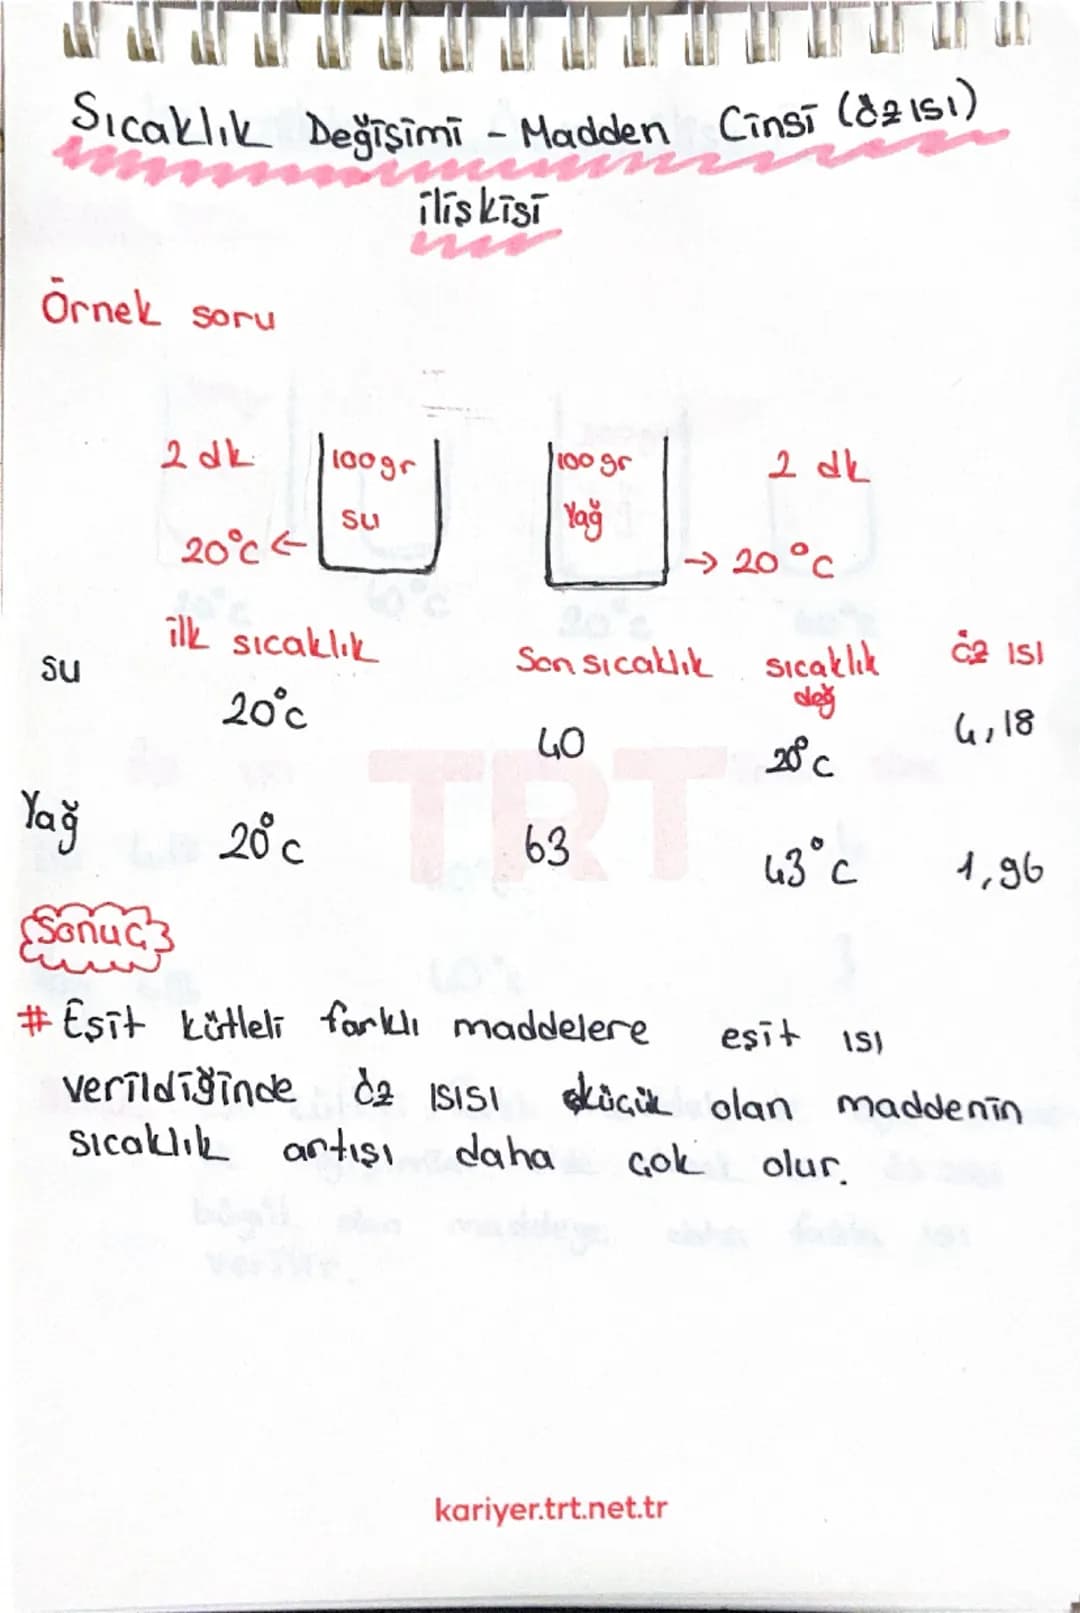 Sıcaklık Değişimi - Madden Cinsi (öz ısı)
ilişkisi
Örnek soru
2 dk 100 gr 100 gr 2 dk
su Yağ
20°c ← → 20°c
ilk sıcaklık Son sıcaklık sıcaklık değ öz ısı
su 20°c 40 20°c 4,18
Yağ 20°c 63 43°c 1,96
Sonuç
# Eşit kütleli farklı maddelere eşit ısı
verildiğinde öz ısısı küçük olan maddenin
sıcaklık artışı daha çok olur.
TRT
kariyer.trt.net.tr